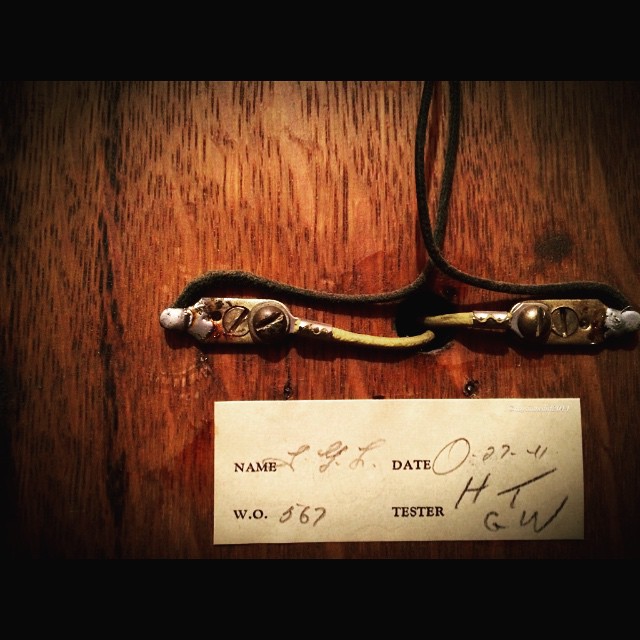 NAME L. G. L. DATE O-27-41
W.O. 567 TESTER H T
G W